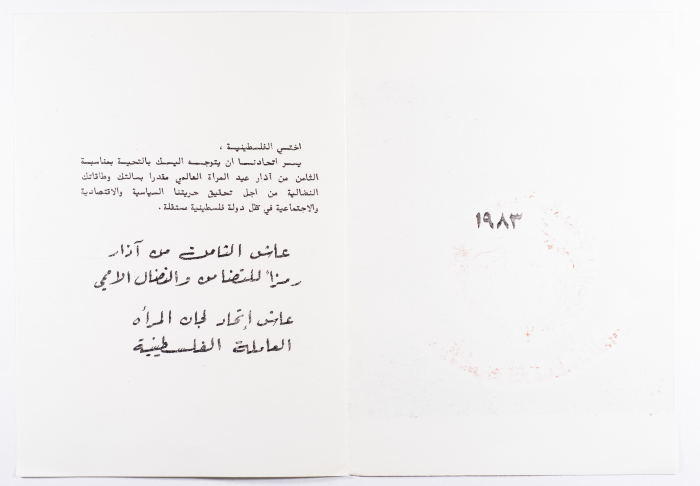 اختي الفلسطينية ،
يسر اتحادنا ان يتوجه اليك بالتحية بمناسبة
الثامن من آذار عيد المرأة العالمي مقدرا بسالتك وطاقاتك
النضالية من اجل تحقيق حريتنا السياسية والاقتصادية
والاجتماعية في ظل دولة فلسطينية مستقلة .
عاش الثامن من آذار
رمزاً للتضامن والنضال الاممي
عاش إتحاد لجان المرأه
العاملة الفلسطينية
١٩٨٣